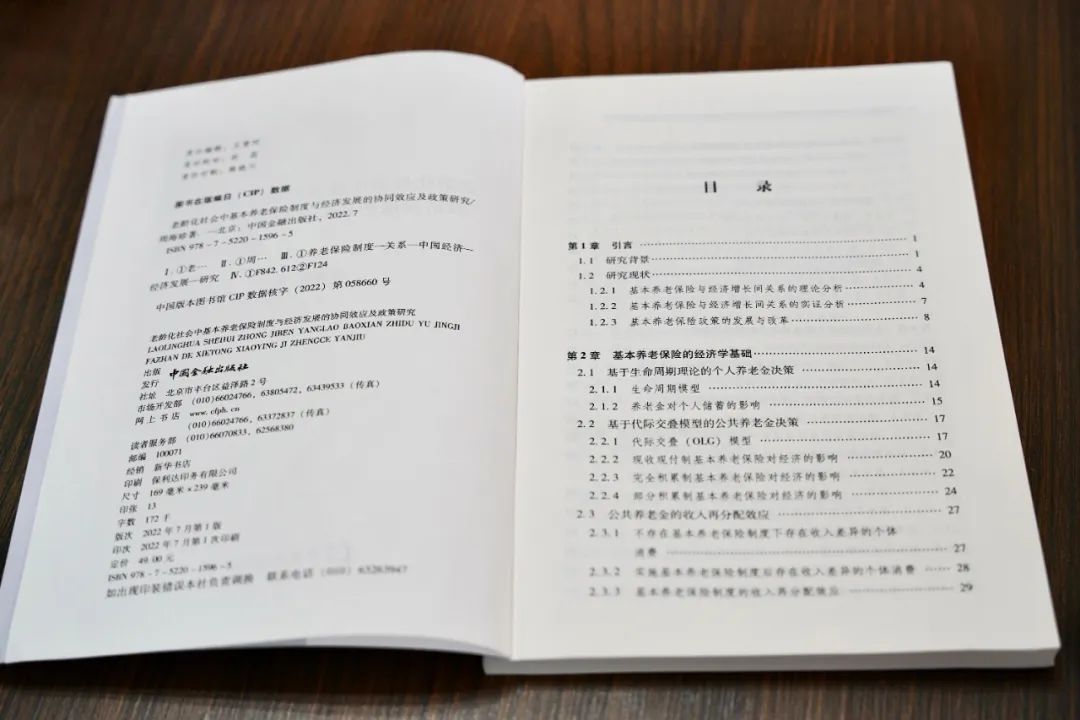 图书在版编目（CIP）数据
老龄化社会中基本养老保险制度与经济发展的协同效应及政策研究/
周海珍著．—北京：中国金融出版社，2022.7
ISBN 978-7-5220-1596-5
Ⅰ.①老… Ⅱ.①周… Ⅲ.①养老保险制度—关系—中国经济—
经济发展—研究 Ⅳ.①F842.612②F124
中国版本图书馆CIP数据核字（2022）第058660号
老龄化社会中基本养老保险制度与经济发展的协同效应及政策研究
LAOLINGHUA SHEHUI ZHONG JIBEN YANGLAO BAOXIAN ZHIDU YU JINGJI
FAZHAN DE XIETONG XIAOYING JI ZHENGCE YANJIU
出版 中国金融出版社
发行
社址 北京市丰台区益泽路2号
市场开发部 (010)66024766，63805472，63439533（传真）
网上书店 www.cfph.cn
(010)66024766，63372837（传真）
读者服务部 (010)66070833，62568380
邮编 100071
经销 新华书店
印刷 保利达印务有限公司
尺寸 169毫米×239毫米
印张 13
字数 172千
版次 2022年7月第1版
印次 2022年7月第1次印刷
定价 49.00元
ISBN 978-7-5220-1596-5
如出现印装错误本社负责调换 联系电话（010）63263947
目 录
第1章 引言 1
1.1 研究背景 1
1.2 研究现状 4
1.2.1 基本养老保险与经济增长间关系的理论分析 4
1.2.2 基本养老保险与经济增长间关系的实证分析 7
1.2.3 基本养老保险政策的发展与改革 8
第2章 基本养老保险的经济学基础 14
2.1 基于生命周期理论的个人养老金决策 14
2.1.1 生命周期模型 14
2.1.2 养老金对个人储蓄的影响 15
2.2 基于代际交叠模型的公共养老金决策 17
2.2.1 代际交叠（OLG）模型 17
2.2.2 现收现付制基本养老保险对经济的影响 20
2.2.3 完全积累制基本养老保险对经济的影响 22
2.2.4 部分积累制基本养老保险对经济的影响 24
2.3 公共养老金的收入再分配效应 27
2.3.1 不存在基本养老保险制度下存在收入差异的个体
消费 27
2.3.2 实施基本养老保险制度后存在收入差异的个体消费 28
2.3.3 基本养老保险制度的收入再分配效应 29